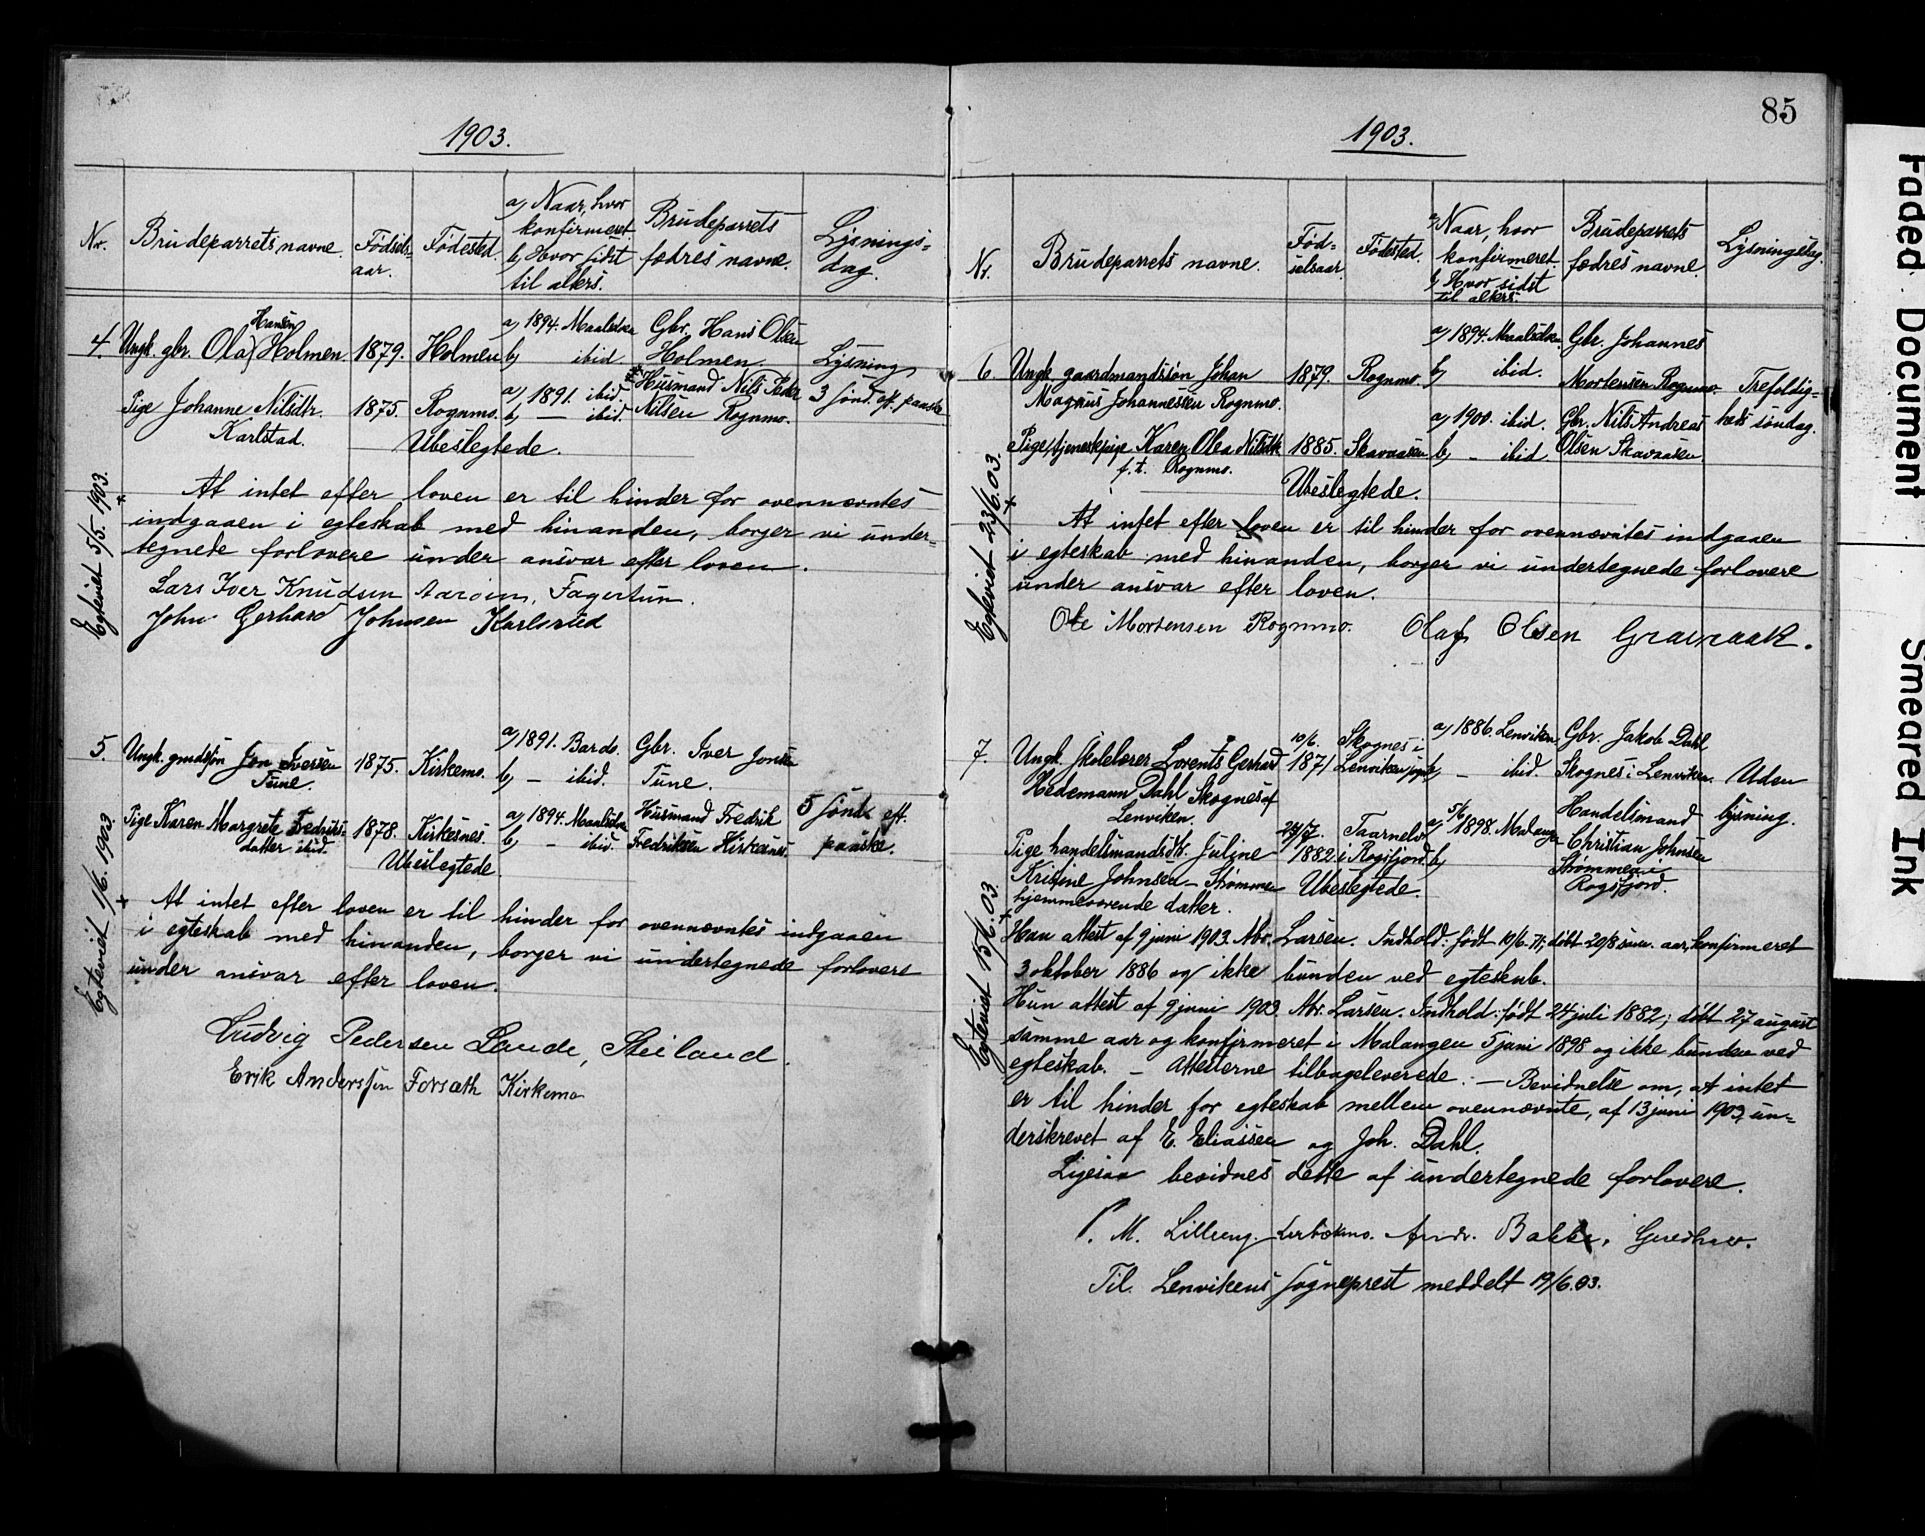 1903.
Nr.
Brudeparrets navne.
Fødsels-
aar.
Fødested.
a, Naar, hvor
konfirmeret
b, Hvor sidst
til alters.
Brudeparrets
fædres navne.
Lysnings-
dag.
4.
Hansen
Ungk. gbr. Ola) Holmen.
1879.
Holmen
a, 1894. Maalselven
b, ibid.
Gbr. Hans Olsen
Holmen
Lysning
3 sønd. eft. paaske
Pige Johanne Nilsdtr.
Karlstad.
1875.
Rognmo.
a, 1891. ibid.
b, — ibid.
Husmand Nils Peder
Nilsen Rognmo.
Ubeslegtede.
At intet efter loven er til hinder for ovennævntes
indgaaen i egteskab med hinanden, borger vi under-
tegnede forlovere under ansvar efter loven.
Lars Iver Knudsen Fagertun.
John Gerhard Johnsen Karlsrud
Egteviet 5/5. 1903.
5.
Ungk. gmdssøn Jon Iversen
Tune.
1875.
Kirkemo.
a, 1891. Bardo.
b, — ibid.
Gbr. Iver Jonsen
Tune.
5 sønd. eft.
paaske.
Pige Karen Margrete Fredriks-
datter ibid.
1878.
Kirkesnes.
a, 1894. Maalselven
b, — ibid.
Husmand Fredrik
Fredriksen Kirkesnes.
Ubeslegtede
At intet efter loven er til hinder for ovennævntes indgaaen
i egteskab med hinanden, borger vi undertegnede forlovere
under ansvar efter loven.
Ludvig Pedersen Lande, Steiland.
Erik Anderssen Forsæth Kirkemo
Egteviet 1/6. 1903.
85
1903.
Nr.
Brudeparrets navne.
Fød-
selsaar.
Fødested.
a, Naar, hvor
konfirmeret
b, Hvor sidst
til alters
Brudeparrets
fædres navne.
Lysningsdag.
6.
Ungk. gaardmandssøn Johan
Magnus Johannessen Rognmo.
1879.
Rognmo.
a, 1894. Maalselven
b, ibid.
Gbr. Johannes
Mortensen Rognmo.
Trefoldig-
heds søndag.
Pige, tjenestepige Karen Olea Nilsdtr.
f. t. Rognmo.
1885.
Skavaasen
a, 1900. ibid.
b, — ibid.
Gbr. Nils Andreas
Olsen Skavaasen
Ubeslegtede.
At intet efter loven er til hinder for ovennævntes indgaaen
i egteskab med hinanden, borger vi undertegnede forlovere
under ansvar efter loven.
Ole Mortensen Rognmo. Olaf Olsen Gravraak.
Egteviet 23/6. 03.
7.
Ungk. skolelærer Lorents Gerhard
Hedemann Dahl Skognes af
Lenviken.
10/6.
1871
Skognes i
Lenviken sogn
a, 1886 Lenviken
b, — ibid.
Gbr. Jakob Dahl
Skognes i Lenviken.
Uden
lysning.
Pige handelsmandsdtr. Juline
Kristine Johnsen — Strømmen
hjemmeværende datter.
24/7.
1882
Taarnelv
i Rogsfjord
a, 5/6 1898. Malangen
b,
Handelsmand
Christian Johnsen
Strømmen i
Rogsfjord
Ubeslegtede.
Han attest af 9 juni 1903. Abr. Larsen. Indhold: født 10/6-71; døbt 20/8 sam. aar, konfirmeret
3 oktober 1886 og ikke bunden ved egteskab.
Hun attest af 9 juni 1903. Abr. Larsen. Indhold: født 24 juli 1882; døbt 27 august
samme aar og konfirmeret i Malangen 5 juni 1898 og ikke bunden ved
egteskab. — Attesterne tilbageleverede. — Bevidnelse om, at intet
er til hinder for egteskab mellem ovennævnte, af 13 juni 1903, un-
derskrevet af E. Eliassen og Joh. Dahl.
Ligesaa bevidnes dette af undertegnede forlovere.
P. M. Lilleeng. Andr. Bakke,
Til Lenvikens sogneprest meddelt 19/6.03.
Egteviet 15/6. 03.
Faded Document
Smeared Ink